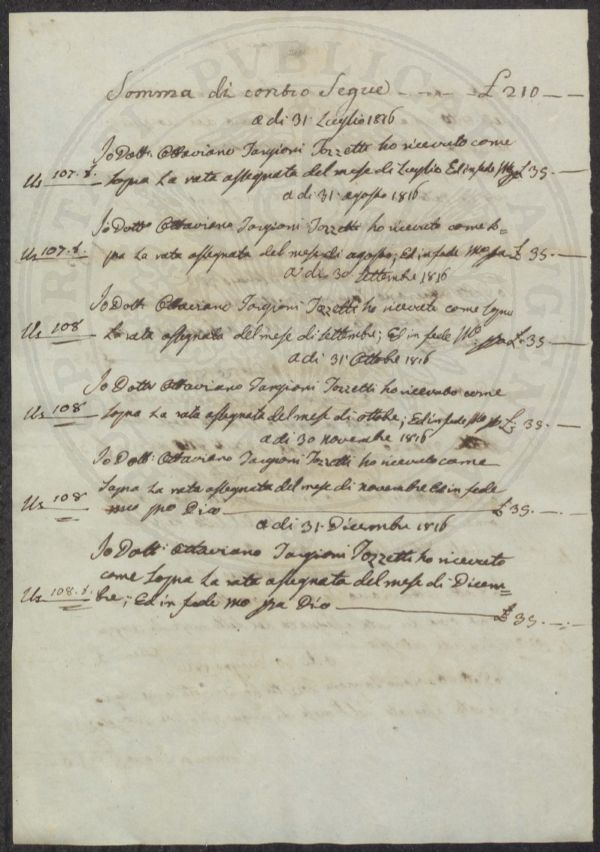 Somma di contro Segue £ 210
a di 31 Luglio 1816
Io Dott. Ottaviano Targioni Tozzetti ho ricevuto come
Us 107. t. sopra La rata assegnata del mese di Luglio Ed in fede £ 35.
a di 31 agosto 1816
Io Dott. Ottaviano Targioni Tozzetti ho ricevuto come so=
Us 107. t. pra La rata assegnata del mese di agosto; Ed in fede £ 35.
a di 30 Settembre 1816
Io Dott. Ottaviano Targioni Tozzetti ho ricevuto come sopra
Us 108 La rata assegnata del mese di settembre; Ed in fede £ 35.
a di 31 Ottobre 1816
Io Dott. Ottaviano Targioni Tozzetti ho ricevuto come
Us 108 sopra La rata assegnata del mese di ottobe; Ed in fede £ 35.
a di 30 novembre 1816
Io Dott. Ottaviano Targioni Tozzetti ho ricevuto come
Us 108 sopra La rata assegnata del mese di novembre Ed in fede
mo ppa Dico £ 35.
a di 31 Dicembre 1816
Io Dott. Ottaviano Targioni Tozzetti ho ricevuto
come sopra La rata assegnata del mese di Dicem=
Us 108. t. bre; Ed in fede mo ppa Dico
£ 35.